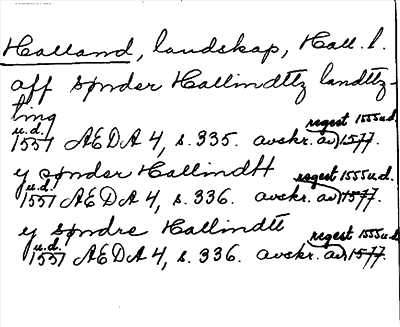 Halland, landskap, Hall. l.
aff sønder Hallindttz landttz-
ting
u.d. regest 1555 u.d.
1551 AEDA 4, s. 335. avskr. av 1577.
y sønder Hallindtt
u.d. regest 1555 u.d.
1551 AEDA 4, s. 336. avskr. av 1577.
y søndre Hallindtt
u.d. regest 1555 u.d.
1551 AEDA 4, s. 336. avskr. av 1577.